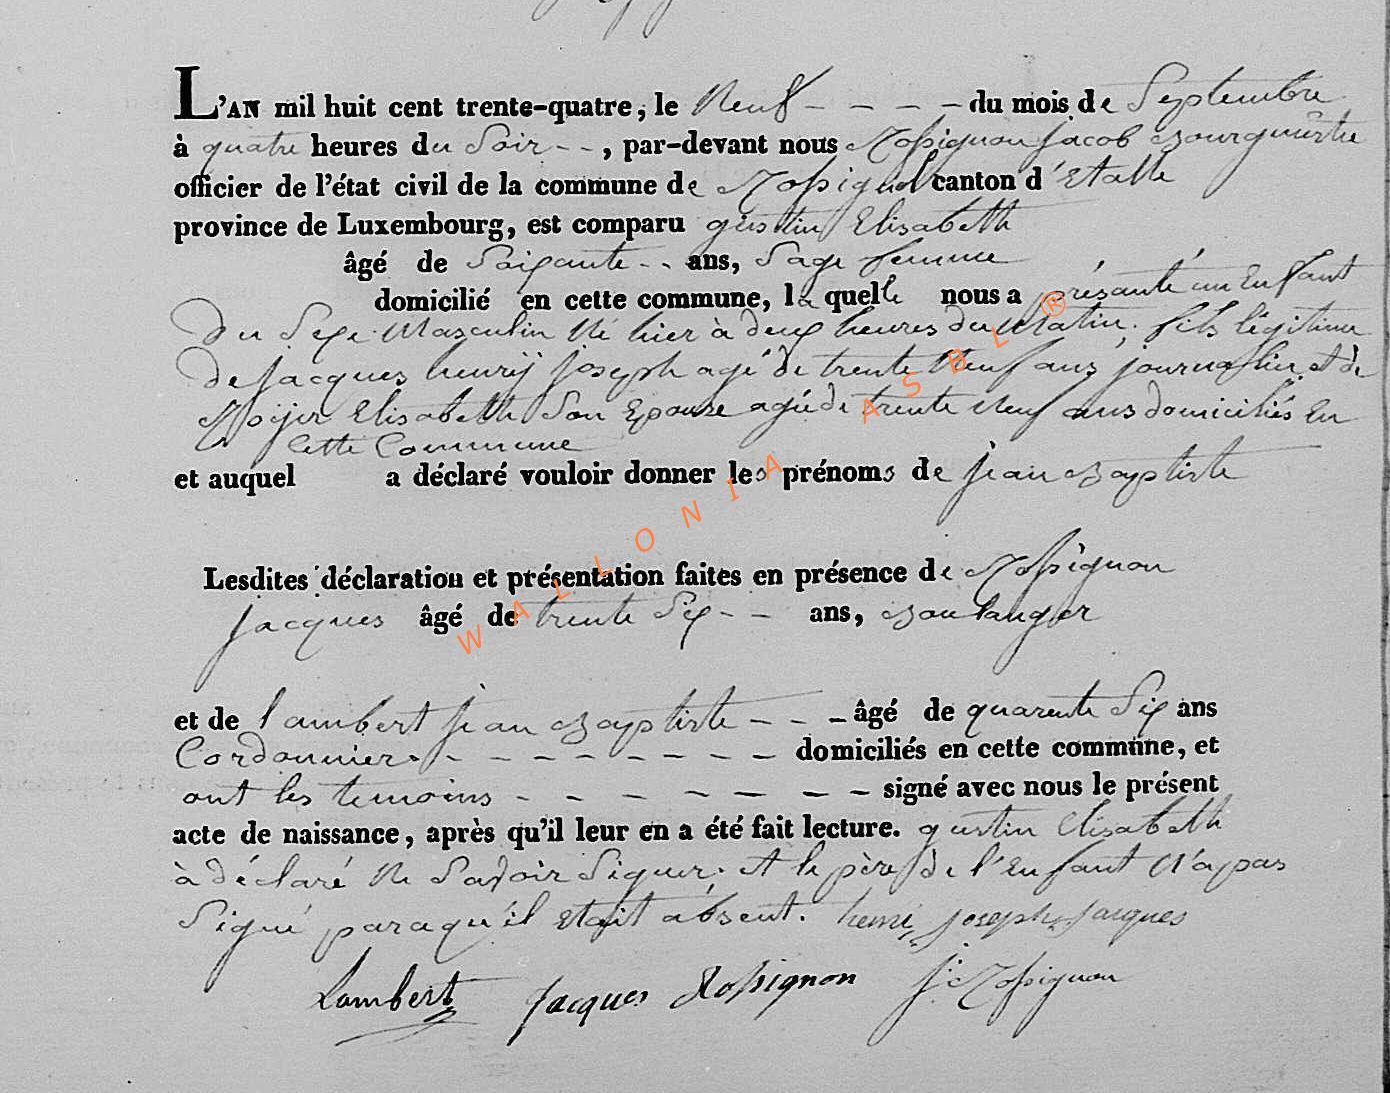 L'AN mil huit cent trente-quatre, le Neuf - - - - du mois de Septembre
à quatre heures du Soir - -, par-devant nous Rossignon Jacob Bourguëmtre
officier de l'état civil de la commune de Rossignol canton d'Etalle
province de Luxembourg, est comparu gustin Elisabeth
âgé de Soixante - - ans, Sage femme
domicilié en cette commune, laquelle nous a présanté un Enfant
du Sexe Masculin Né hier à deux heures du Matin. fils légitime
de Jacques henrij Joseph agé de trente Neuf ans journallier et de
Elisabeth Son Epouse agée de trente Neuf ans domiciliés En
Cette Commune
et auquel a déclaré vouloir donner les prénoms de jean Baptiste
Lesdites déclaration et présentation faites en présence de Rossignon
Jacques âgé de trente Six - - ans, Boulanger
et de lambert jean Baptiste - - - âgé de quarente Six ans
Cordonnier - - - - - - - - domiciliés en cette commune, et
ont les temoins - - - - - - - signé avec nous le présent
acte de naissance, après qu'il leur en a été fait lecture. gustin Elisabeth
à déclaré Ne Savoir Signer. et le père de l'Enfant N'a pas
Signé paraqu'il Etait absent. henri joseph jacques
Lambert Jacques Rossignon J. Rossignon
WALLONIA ASBL ®